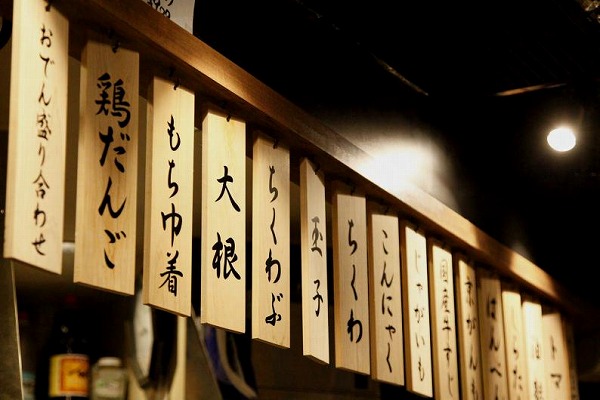 おでん盛り合わせ
鶏だんご
もち巾着
大根
ちくわぶ
玉子
ちくわ
こんにゃく
じゃがいも
国産牛すじ
京がんも
はんぺん